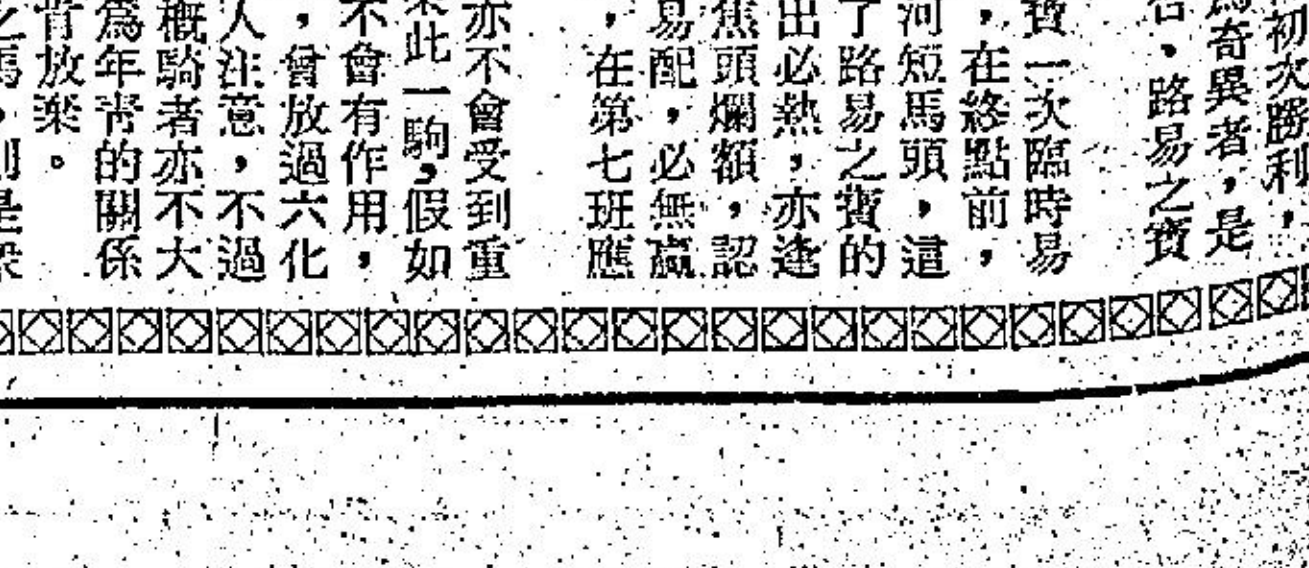 初次勝利，
奇異者，是
，路易之寶
寶一次臨時易
，在終點前，
河短馬頭，這
了路易之寶的
出必熱，亦逢
焦頭爛額，認
易配，必無贏
，在第七班應
亦不會受到重
此一駒，假如
不會有作用，
，曾放過六化
人注意，不過
概騎者亦不大
爲年靑的關係
肯放槳。
之馬，則是